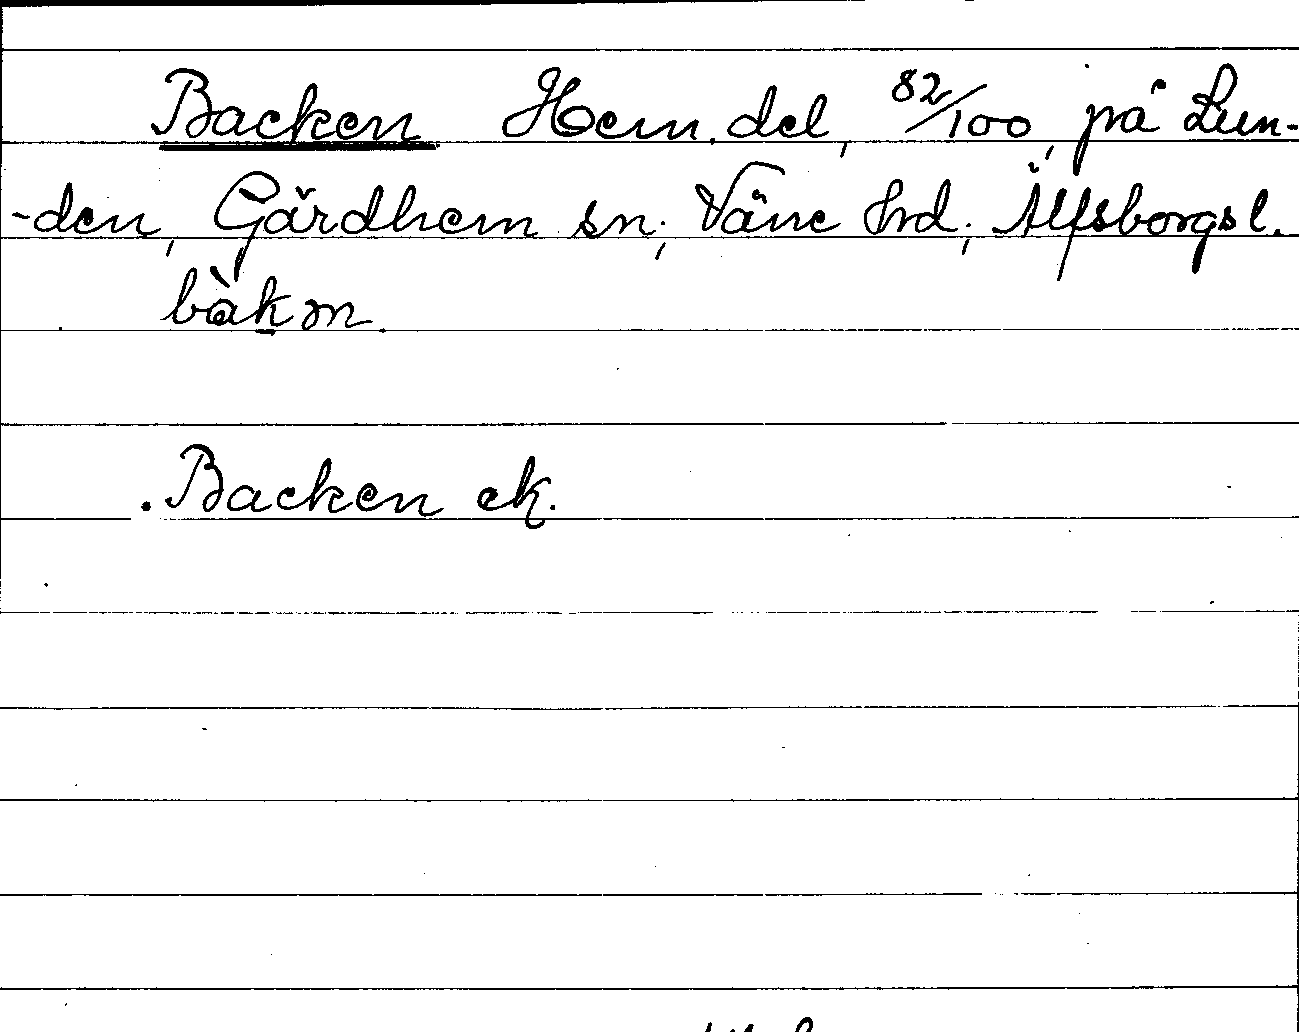 Backen Hem.del, 82/100, på Lun-
-den, Gärdhem sn., Väne hrd., Älfsborgs l.
bàkm.
. Backen ek.